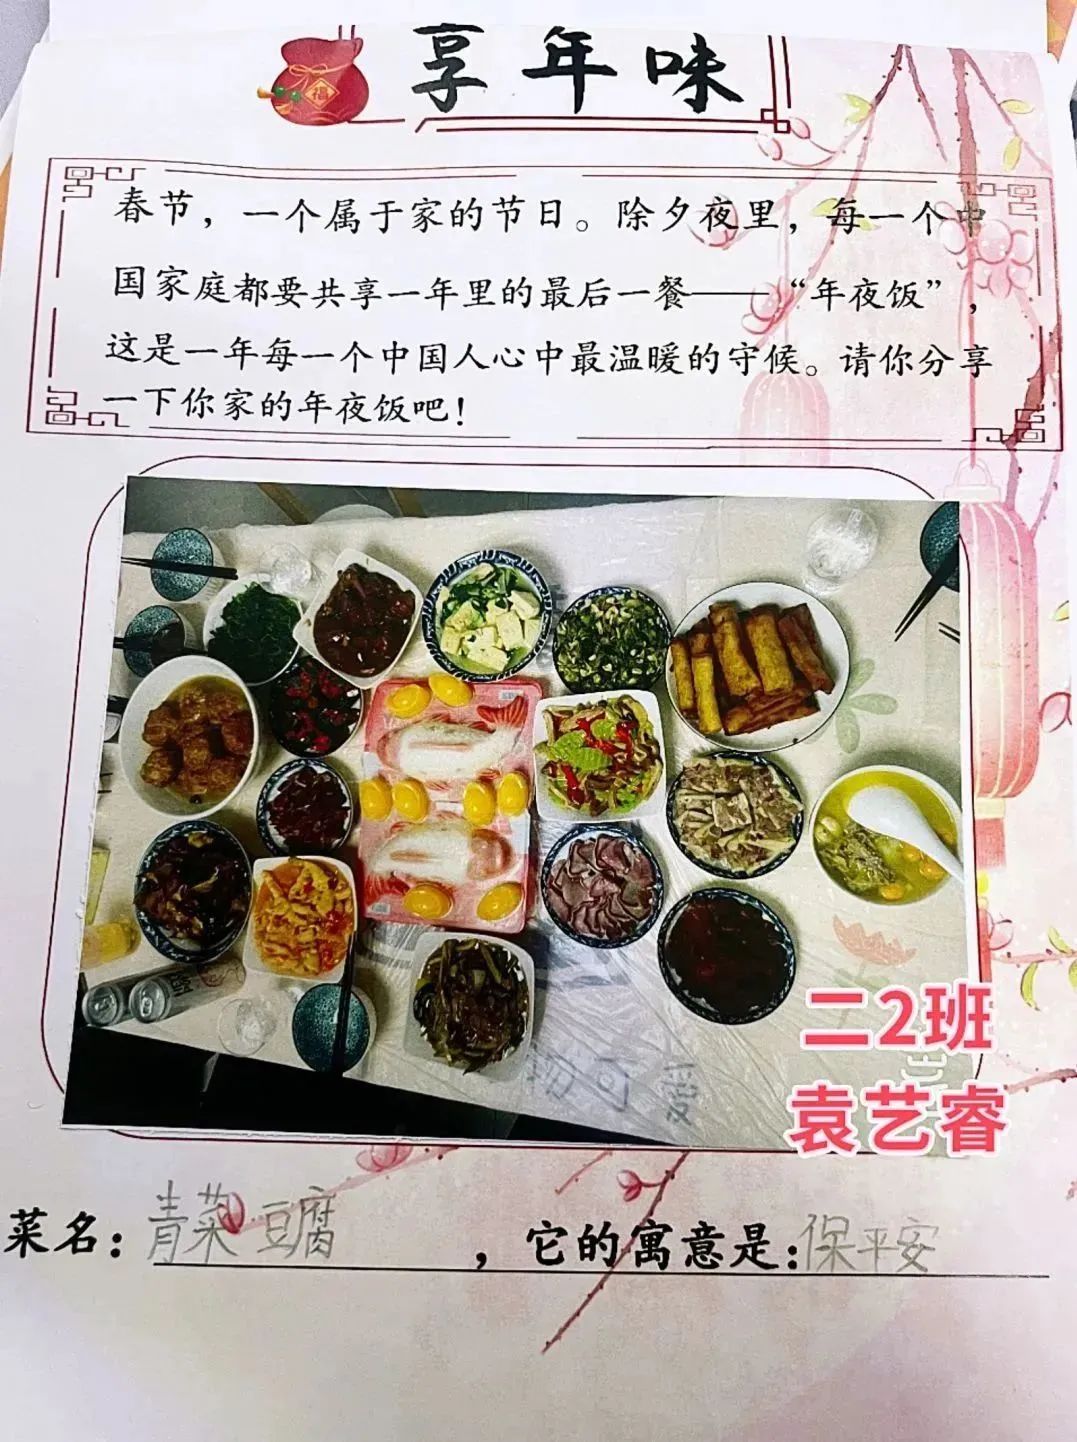 享年味
福
春节，一个属于家的节日。除夕夜里，每一个中
国家庭都要共享一年里的最后一餐——“年夜饭”，
这是一年每一个中国人心中最温暖的守候。请你分享
一下你家的年夜饭吧！
二2班
袁艺睿
菜名：青菜豆腐，它的寓意是：保平安